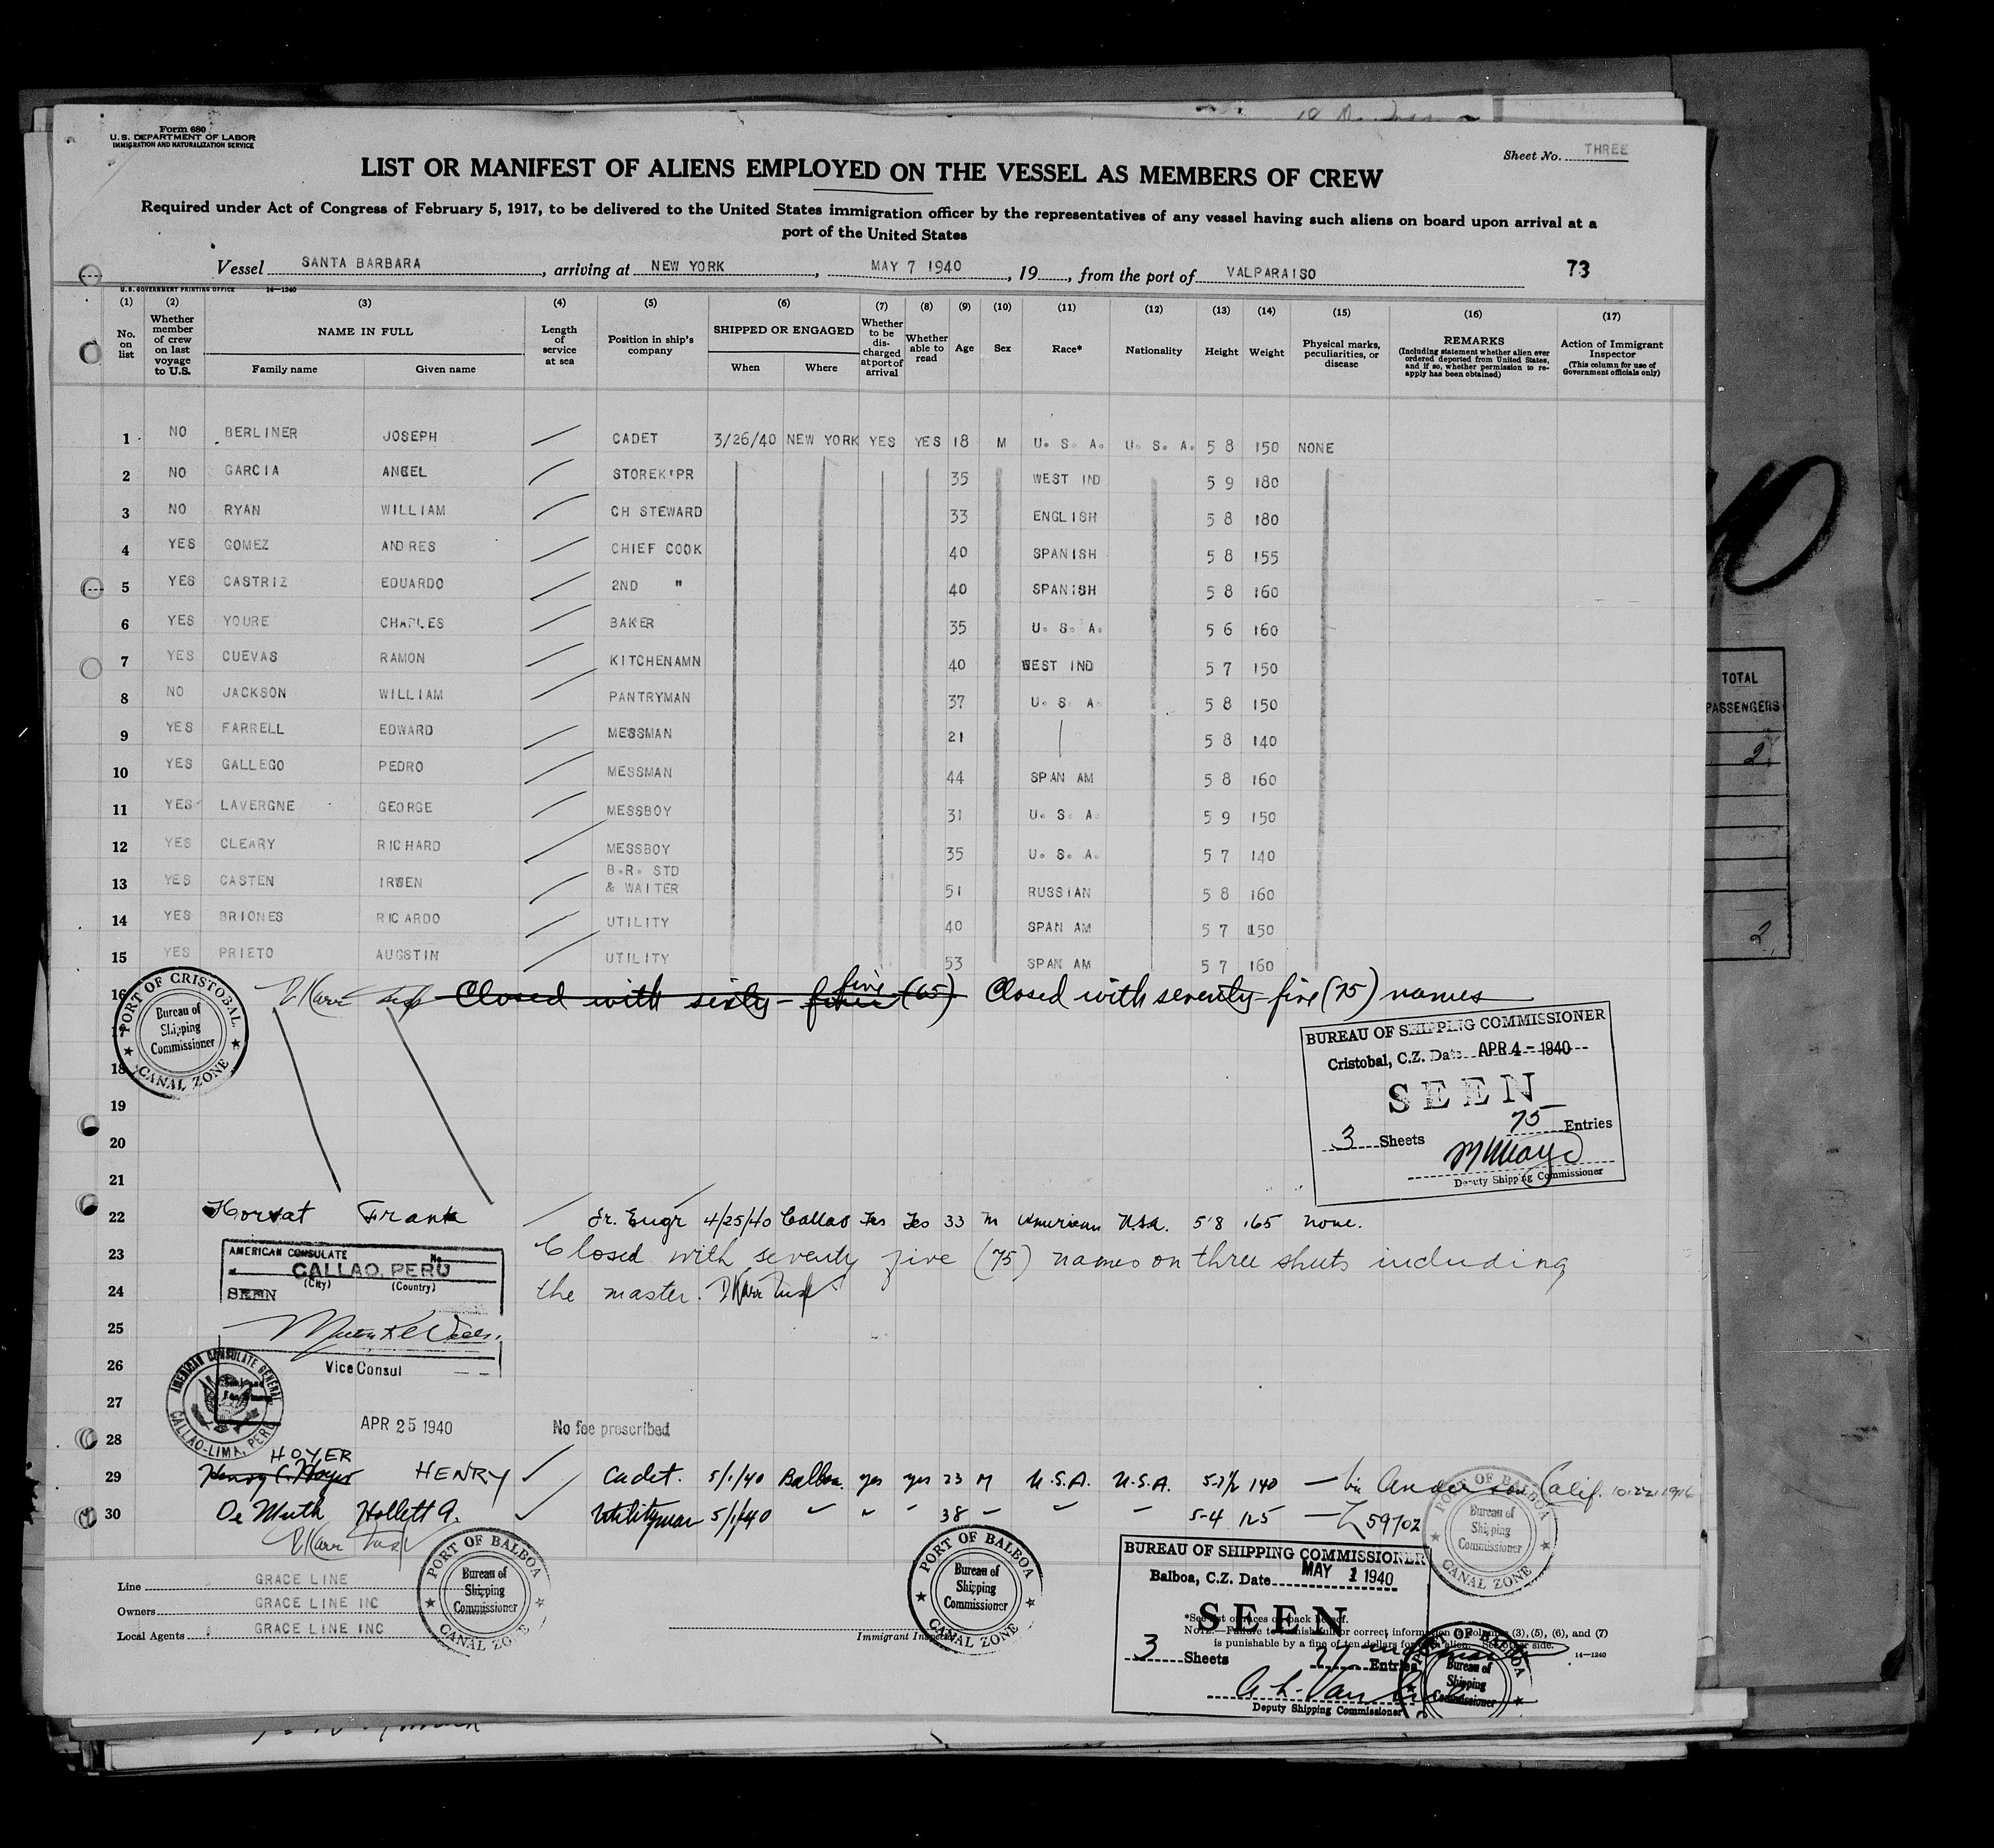 Form 680
U. S. DEPARTMENT OF LABOR
IMMIGRATION AND NATURALIZATION SERVICE
Sheet No. THREE
LIST OR MANIFEST OF ALIENS EMPLOYED ON THE VESSEL AS MEMBERS OF CREW
Required under Act of Congress of February 5, 1917, to be delivered to the United States immigration officer by the representatives of any vessel having such aliens on board upon arrival at a
port of the United States
Vessel SANTA BARBARA, arriving at NEW YORK, MAY 7 1940, 19, from the port of VALPARAISO 73
U. S. GOVERNMENT PRINTING OFFICE 14—1240
(1) (2) (3) (4) (5) (6) (7) (8) (9) (10) (11) (12) (13) (14) (15) (16) (17)
No. on list
Whether member of crew on last voyage to U.S.
NAME IN FULL
Family name Given name
Length of service at sea
Position in ship's company
SHIPPED OR ENGAGED
When Where
Whether to be discharged at port of arrival
Whether able to read
Age
Sex
Race*
Nationality
Height
Weight
Physical marks, peculiarities, or disease
REMARKS
(Including statement whether alien ever ordered deported from United States, and if so, whether permission to reapply has been obtained)
Action of Immigrant Inspector
(This column for use of Government officials only)
1 NO BERLINER JOSEPH CADET 3/26/40 NEW YORK YES YES 18 M U. S. A. U. S. A. 5 8 150 NONE
2 NO GARCIA ANGEL STOREK'PR 35 WEST IND 5 9 180
3 NO RYAN WILLIAM CH STEWARD 33 ENGLISH 5 8 180
4 YES GOMEZ ANDRES CHIEF COOK 40 SPANISH 5 8 155
5 YES CASTRIZ EDUARDO 2ND " 40 SPANISH 5 8 160
6 YES YOURE CHARLES BAKER 35 U. S. A. 5 6 160
7 YES CUEVAS RAMON KITCHENAMN 40 WEST IND 5 7 150
8 NO JACKSON WILLIAM PANTRYMAN 37 U. S. A. 5 8 150
9 YES FARRELL EDWARD MESSMAN 21 5 8 140
10 YES GALLEGO PEDRO MESSMAN 44 SPAN AM 5 8 160
11 YES LAVERGNE GEORGE MESSBOY 31 U. S. A. 5 9 150
12 YES CLEARY RICHARD MESSBOY 35 U. S. A. 5 7 140
13 YES CASTEN IRWEN B.R. STD & WAITER 51 RUSSIAN 5 8 160
14 YES BRIONES RICARDO UTILITY 40 SPAN AM 5 7 150
15 YES PRIETO AUGSTIN UTILITY 53 SPAN AM 5 7 160
16 Closed with sixty- five (65) Closed with seventy-five (75) names
17
18
19
20
21
PORT OF CRISTOBAL
Bureau of Shipping Commissioner
CANAL ZONE
BUREAU OF SHIPPING COMMISSIONER
Cristobal, C.Z. Date APR 4 - 1940
SEEN
3 Sheets 75 Entries
Deputy Shipping Commissioner
22 Horvat Frank Jr. Engr 4/25/40 Callao Yes Yes 33 M American U.S.A. 5'8 165 none.
23 Closed with seventy five (75) names on three sheets including
24 the master.
25
26
27
28
AMERICAN CONSULATE
No.
CALLAO, PERU
(City) (Country)
SEEN
Vice Consul
AMERICAN CONSULATE GENERAL
CALLAO-LIMA, PERU
APR 25 1940
No fee prescribed
HOYER
29 Henry C. Hoyer HENRY Cadet. 5/1/40 Balboa. yes yes 23 M U.S.A. U.S.A. 5-7½ 140 Anderson Calif. 10-22-1916
30 De Muth Hollett A. Utilityman 5/1/40 " " " 38 5-4 125 Z 59702
PORT OF BALBOA
Bureau of Shipping Commissioner
CANAL ZONE
PORT OF BALBOA
Bureau of Shipping Commissioner
CANAL ZONE
PORT OF BALBOA
Bureau of Shipping Commissioner
CANAL ZONE
Line GRACE LINE
Owners GRACE LINE INC
Local Agents GRACE LINE INC
Immigrant Inspector
BUREAU OF SHIPPING COMMISSIONER
Balboa, C.Z. Date MAY 1 1940
SEEN
3 Sheets 77 Entries
Deputy Shipping Commissioner
*See list of races on back hereof.
NOTE.—Failure to furnish full or correct information in columns (3), (5), (6), and (7)
is punishable by a fine of ten dollars for each alien. See other side.
14—1240
PORT OF BALBOA
Bureau of Shipping Commissioner
TOTAL
PASSENGERS
2
2